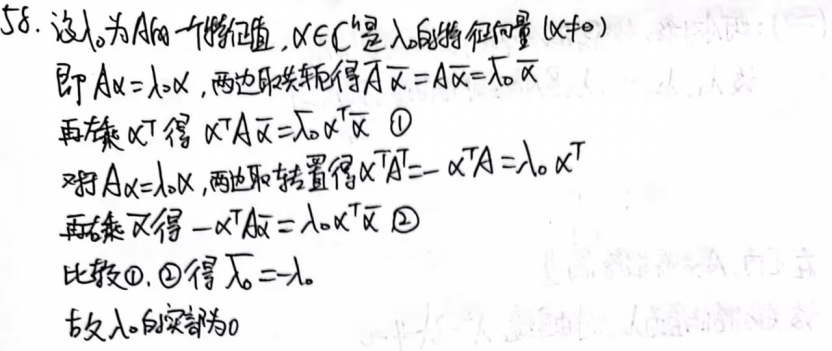 58. 设λ₀为A的一个特征值, α∈Cⁿ是λ₀的特征向量 (α≠0)
即 Aα=λ₀α, 两边取共轭得 A̅ α̅ = Aα̅ = λ̅₀ α̅
再左乘 αᵀ 得 αᵀAα̅ = λ̅₀ αᵀα̅ ①
对于 Aα=λ₀α, 两边取转置得 αᵀAᵀ = - αᵀA = λ₀ αᵀ
再右乘 α̅ 得 -αᵀAα̅ = λ₀αᵀα̅ ②
比较①, ②得 λ̅₀ = -λ₀
故 λ₀的实部为0